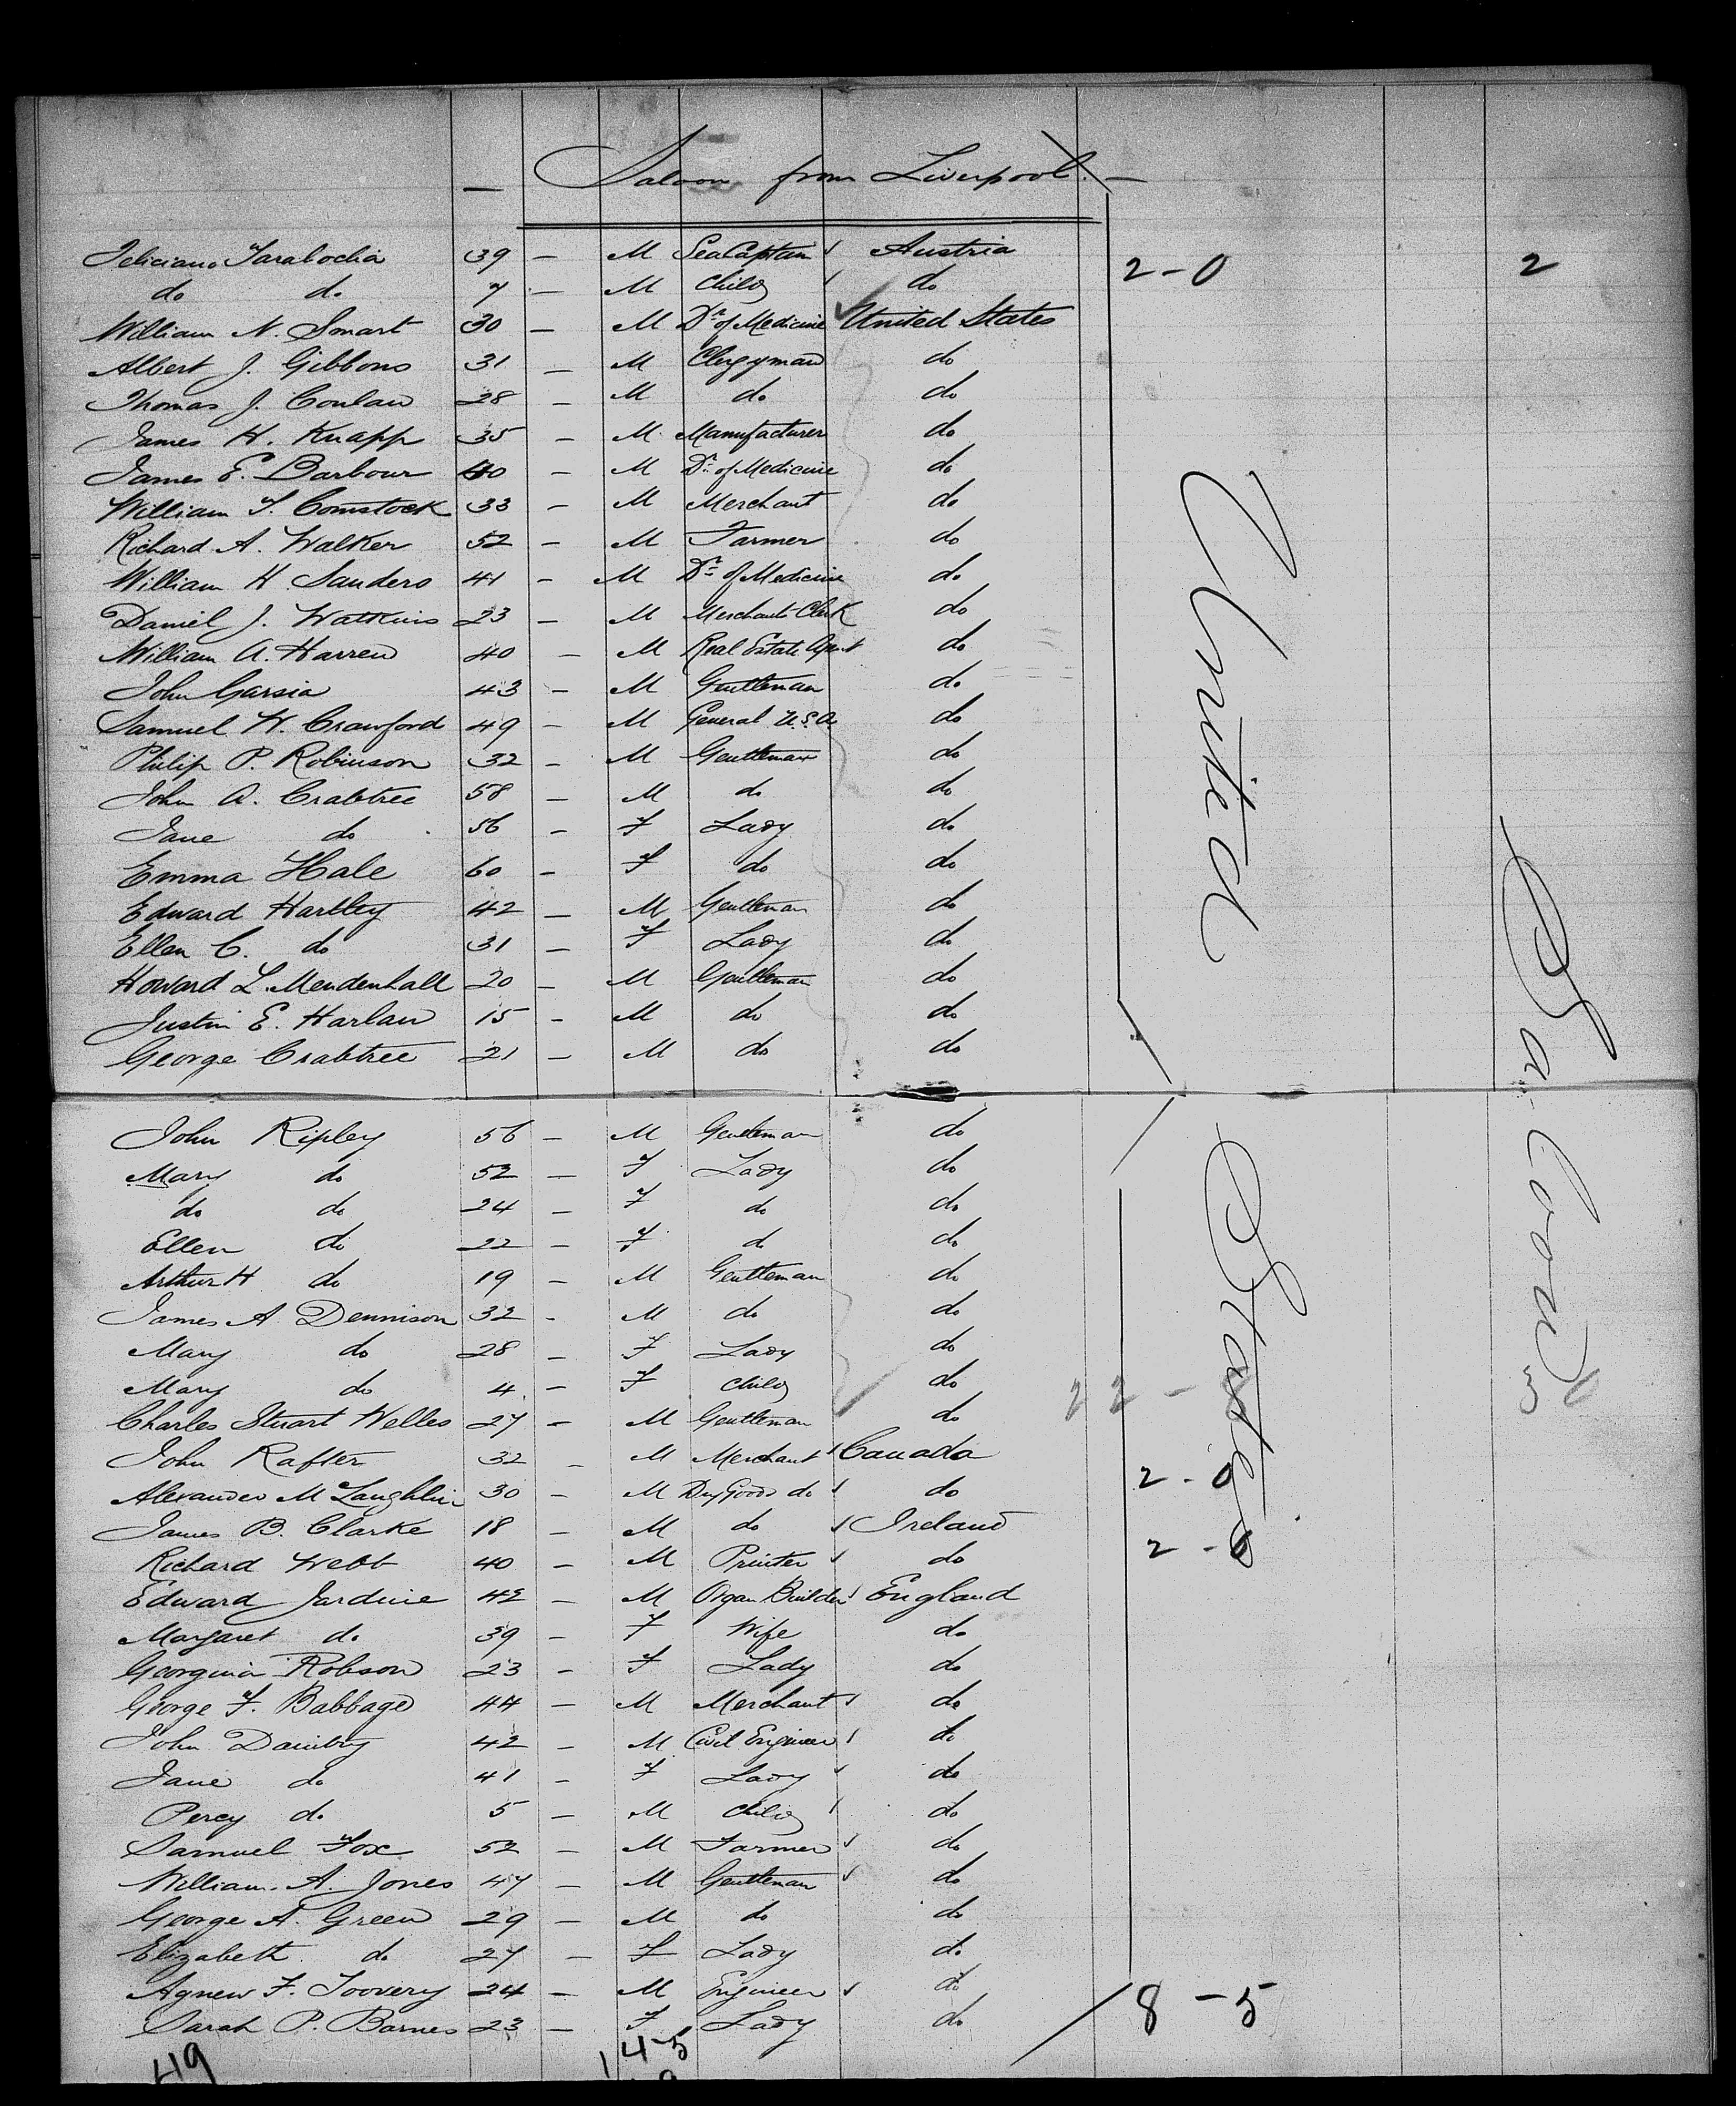 — Saloon from Liverpool. —
Feliciano Tarabochia 39 — M Sea Captain Austria 2-0 2
do do 7 — M Child do
William N. Smart 30 — M Dr of Medicine United States
Albert J. Gibbons 31 — M Clergyman do
Thomas J. Conlan 28 — M do do
James H. Knapp 35 — M Manufacturer do
James E. Barbour 40 — M Dr of Medicine do
William T. Comstock 33 — M Merchant do
Richard A. Walker 52 — M Farmer do
William H. Sanders 41 — M Dr of Medicine do
Daniel J. Watkins 23 — M Merchants Clerk do
William A. Harren 40 — M Real Estate Agent do
John Garsia 43 — M Gentleman do
Samuel W. Crawford 49 — M General U.S.A. do
Philip P. Robinson 32 — M Gentleman do
John A. Crabtree 58 — M do do
Jane do 56 — F Lady do
Emma Hale 60 — F do do
Edward Hartley 42 — M Gentleman do
Ellen C. do 31 — F Lady do
Howard L. Mendenhall 20 — M Gentleman do
Justin E. Harlan 15 — M do do
George Crabtree 21 — M do do
United States
John Ripley 56 — M Gentleman do
Mary do 52 — F Lady do
do do 24 — F do do
Ellen do 22 — F d do
Arthur H do 19 — M Gentleman do
James A Dennison 32 - M do do
Mary do 28 — F Lady do
Mary do 4 — F Child do 22 -
Charles Stuart Welles 27 — M Gentleman do
John Rafter 32 — M Merchant Canada 2-0
Alexander M Laughlin 30 — M Dry Goods do do
James B. Clarke 18 — M do Ireland 2-0
Richard Webb 40 — M Printer do
Edward Jardine 42 — M Organ Builder England
Margaret do 39 — F Wife do
Georgina Robson 23 — F Lady do
George F. Babbage 44 — M Merchant do
John Dainty 42 — M Civil Engineer do
Jane do 41 — F Lady do
Percy do 5 — M Child do
Samuel Fox 52 — M Farmer do
William A. Jones 47 — M Gentleman do
George A. Green 29 — M do do
Elizabeth do 27 — F Lady do
Agnew F. Toovery 24 — M Engineer do
Sarah P. Barnes 23 — F Lady do 8-5
49 14-5